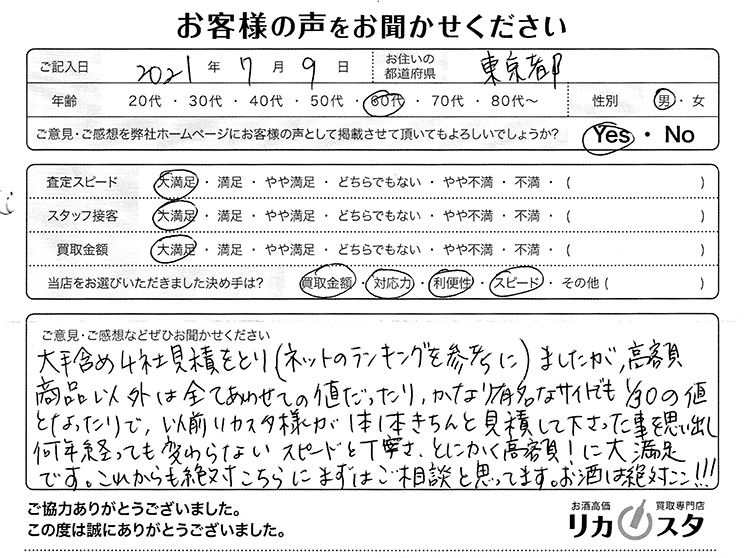 お客様の声をお聞かせください
ご記入日 2021 年 7 月 9 日 お住いの都道府県 東京都
年齢 20代 ・ 30代 ・ 40代 ・ 50代 ・ 60代 ・ 70代 ・ 80代〜 性別 男 ・ 女
ご意見・ご感想を弊社ホームページにお客様の声として掲載させて頂いてもよろしいでしょうか? Yes ・ No
査定スピード 大満足 ・ 満足 ・ やや満足 ・ どちらでもない ・ やや不満 ・ 不満 ・ ( )
スタッフ接客 大満足 ・ 満足 ・ やや満足 ・ どちらでもない ・ やや不満 ・ 不満 ・ ( )
買取金額 大満足 ・ 満足 ・ やや満足 ・ どちらでもない ・ やや不満 ・ 不満 ・ ( )
当店をお選びいただきました決め手は? 買取金額 ・ 対応力 ・ 利便性 ・ スピード ・ その他 ( )
ご意見・ご感想などぜひお聞かせください
大手含め4社見積をとり(ネットのランキングを参考に)ましたが、高額
商品以外は全てあわせての値だったり、かなり有名なサイトでも1/30の値
となったりで、以前リカスタ様が1本1本きちんと見積して下さった事を思い出し
何年経っても変わらない スピードと丁寧さ、とにかく高額!に大満足
です。これからも絶対こちらにまずはご相談と思ってます。お酒は絶対ここ!!!
ご協力ありがとうございました。
この度は誠にありがとうございました。
お酒高価 買取専門店
リカスタ